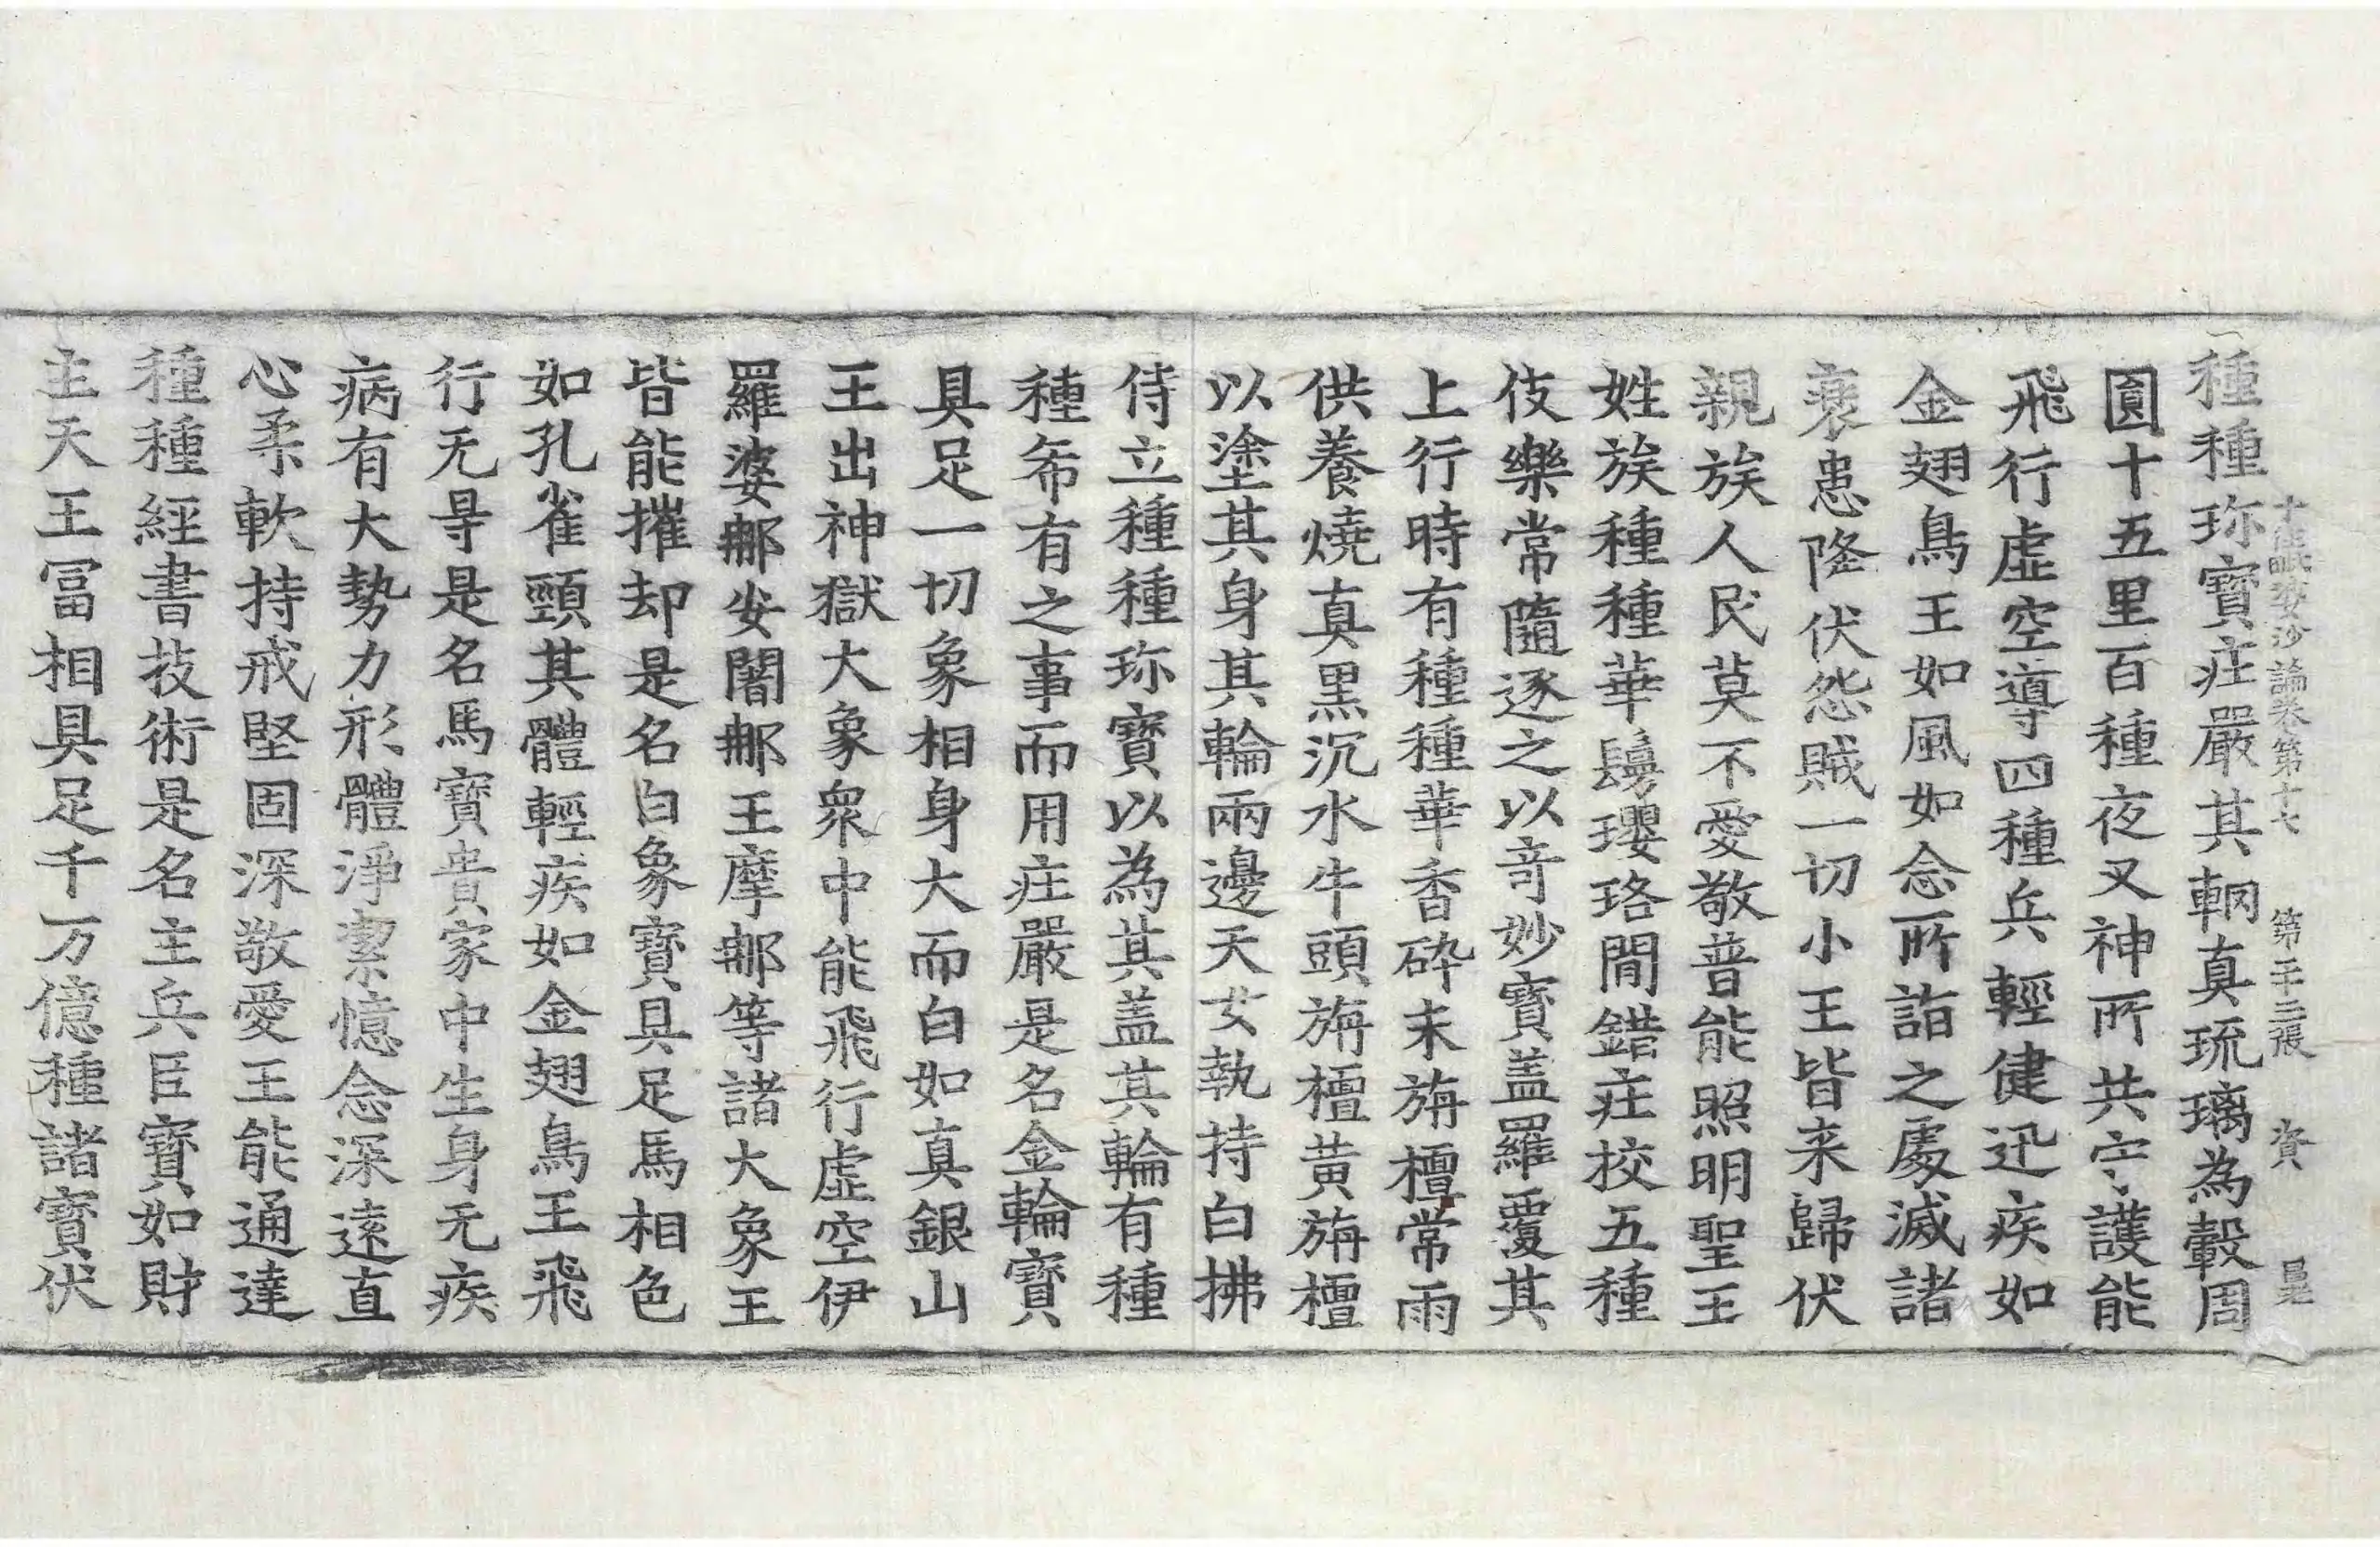 種種珎寶庄嚴其輞真琉璃為轂周
十住毗婆沙論卷第十七 第二十三張 資
圓十五里百種夜叉神所共守護能
飛行虛空導四種兵輕健迅疾如
金翅鳥王如風如念所詣之處滅諸
衰患降伏怨賊一切小王皆来歸伏
親族人民莫不愛敬普能照明聖王
姓族種種華鬘瓔珞閒錯庄挍五種
伎樂常隨逐之以竒妙寶盖羅覆其
上行時有種種華香碎末旃檀常雨
供養燒真黒沉水牛頭旃檀黃旃檀
以塗其身其輪兩邊天女執持白拂
侍立種種珎寶以為其盖其輪有種
種希有之事而用庄嚴是名金輪寶
具足一切象相身大而白如真銀山
王出神獄大象衆中能飛行虛空伊
羅婆那安闍那王摩那等諸大象王
皆能摧却是名白象寶具足馬相色
如孔雀頸其體輕疾如金翅鳥王飛
行无㝵是名馬寶貴家中生身无疾
病有大勢力形體淨潔憶念深遠直
心柔軟持戒堅固深敬愛王能通達
種種經書技術是名主兵臣寶如財
主天王冨相具足千万億種諸寶伏